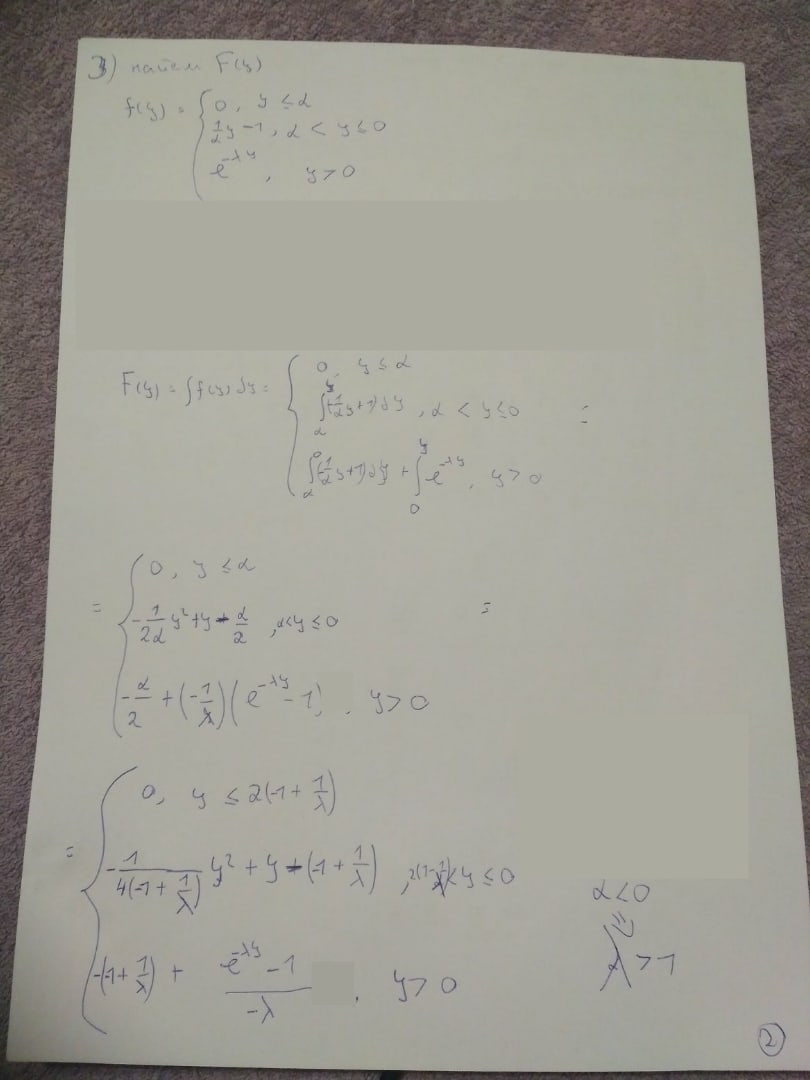 3) найдем F(y)
f(y) = { 0, y ≤ α
1/α y − 1, α < y ≤ 0
e^{−λy}, y > 0
F(y) = ∫f(y)dy = { 0, y ≤ α
∫_α^y (−1/α y + 1) dy, α < y ≤ 0 =
∫_α^0 (−1/α y + 1) dy + ∫_0^y e^{−λy}, y > 0
= { 0, y ≤ α
−1/(2α) y² + y − α/2, α < y ≤ 0 =
−α/2 + (−1/λ)(e^{−λy} − 1), y > 0
= { 0, y ≤ 2(−1 + 1/λ)
−1/(4(−1 + 1/λ)) y² + y − (−1 + 1/λ), 2(1−1/λ) < y ≤ 0
−(−1 + 1/λ) + (e^{−λy} − 1)/(−λ), y > 0
α < 0
⇓
λ > 1
2